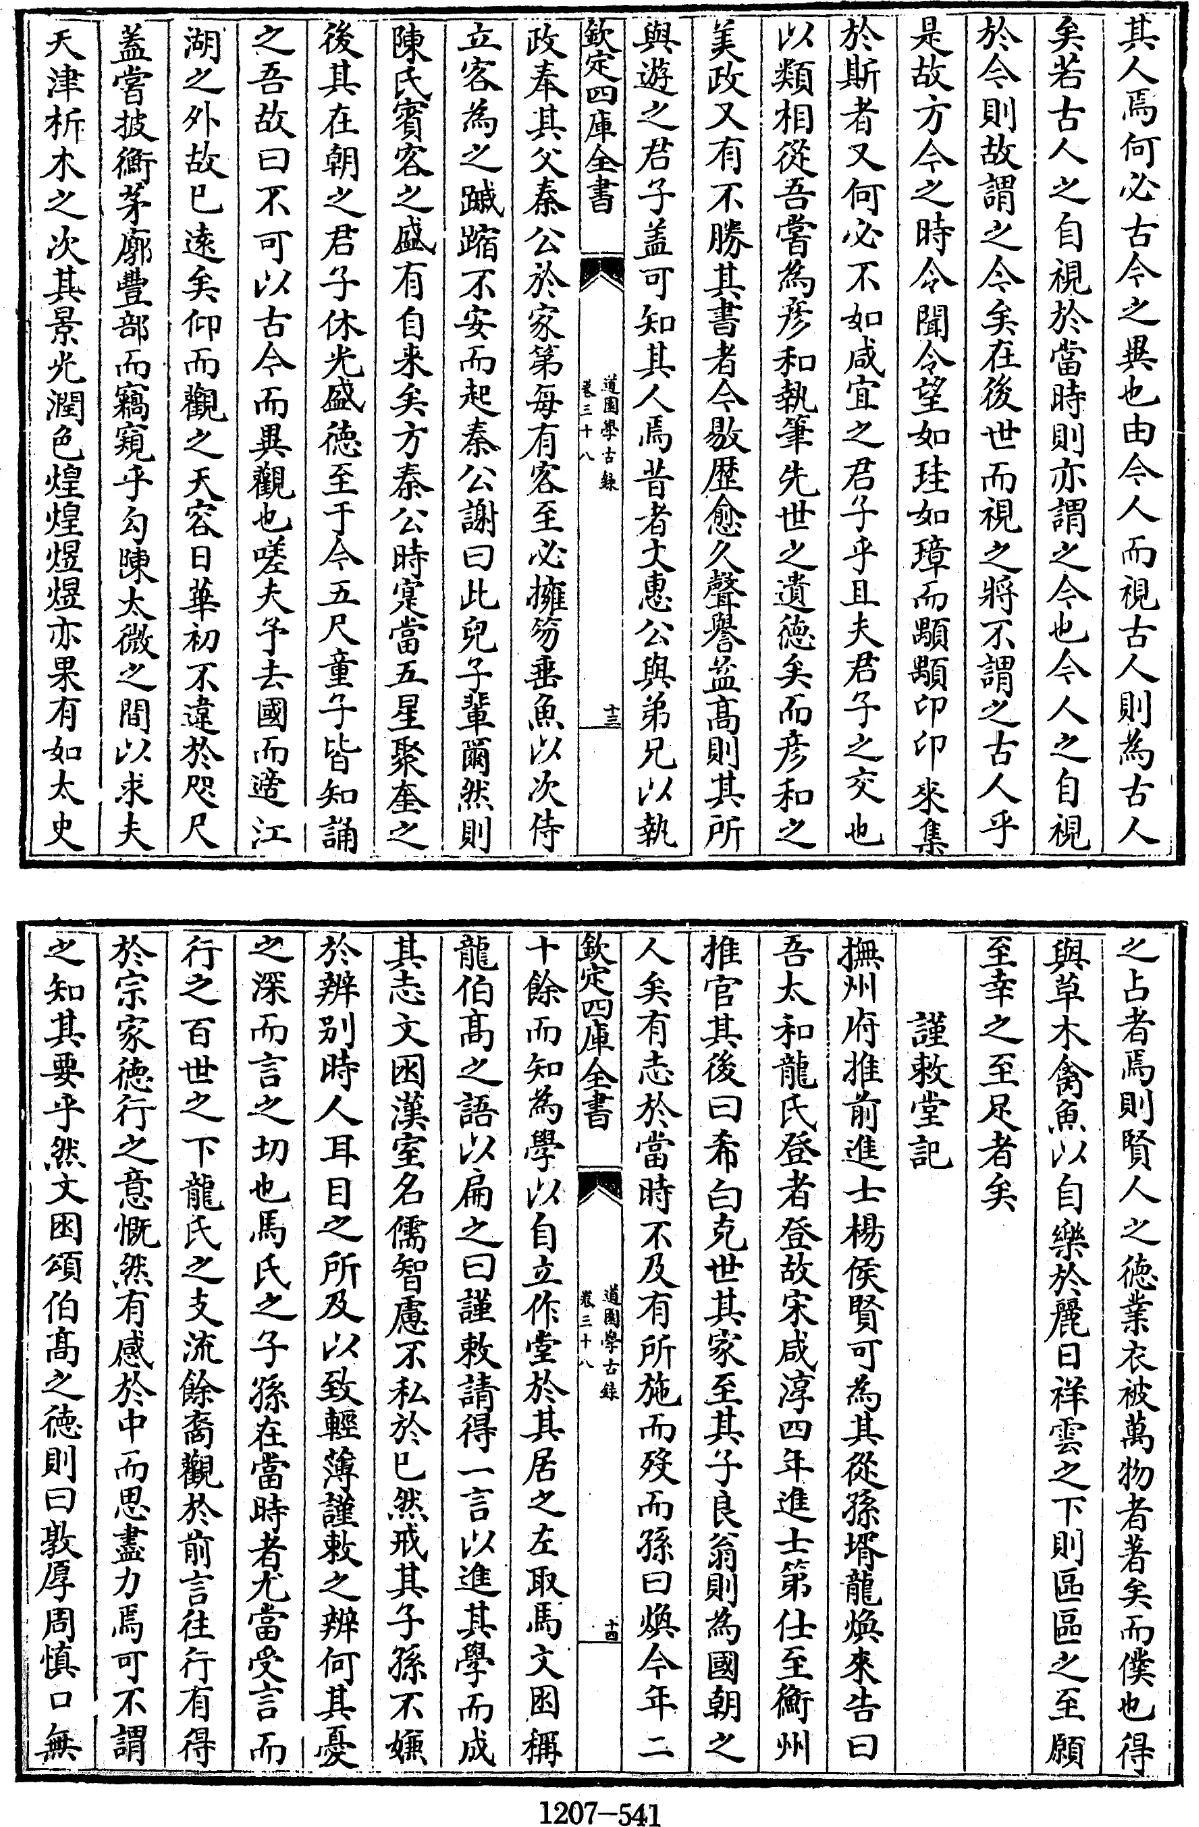 其人焉何必古今之異也由今人而視古人則為古人
矣若古人之自視於當時則亦謂之今也今人之自視
於今則故謂之今矣在後世而視之將不謂之古人乎
是故方今之時令聞令望如珪如璋而顒顒卬卬來集
於斯者又何必不如咸宜之君子乎且夫君子之交也
以類相從吾嘗為彦和執筆先世之遺德矣而彦和之
美政又有不勝其書者今敭歷愈久聲譽益高則其所
與遊之君子盖可知其人焉昔者文惠公與弟兄以執
欽定四庫全書
道園學古錄
卷三十八
十三
政奉其父秦公於家第每有客至必擁笏垂魚以次侍
立客為之踧踖不安而起秦公謝曰此兒子輩爾然則
陳氏賓客之盛有自来矣方秦公時寔當五星聚奎之
後其在朝之君子休光盛德至于今五尺童子皆知誦
之吾故曰不可以古今而異觀也嗟夫予去國而適江
湖之外故已遠矣仰而觀之天容日華初不違於咫尺
蓋嘗披衡茅廓豐部而竊窺乎勾陳太微之間以求夫
天津析木之次其景光潤色煌煌煜煜亦果有如太史
之占者焉則賢人之德業衣被萬物者著矣而僕也得
與草木禽魚以自樂於麗日祥雲之下則區區之至願
至幸之至足者矣
謹敕堂記
撫州府推前進士楊侯賢可為其從孫壻龍煥來告曰
吾太和龍氏登者登故宋咸淳四年進士第仕至衡州
推官其後曰希白克世其家至其子良翁則為國朝之
人矣有志於當時不及有所施而歿而孫曰煥今年二
欽定四庫全書
道園學古錄
卷三十八
十四
十餘而知為學以自立作堂於其居之左取馬文困稱
龍伯髙之語以扁之曰謹敕請得一言以進其學而成
其志文困漢室名儒智慮不私於己然戒其子孫不嫌
於辨别時人耳目之所及以致輕薄謹敕之辨何其憂
之深而言之切也馬氏之子孫在當時者尤當受言而
行之百世之下龍氏之支流餘裔觀於前言往行有得
於宗家德行之意慨然有感於中而思盡力焉可不謂
之知其要乎然文困頌伯髙之德則曰敦厚周慎口無
1207-541